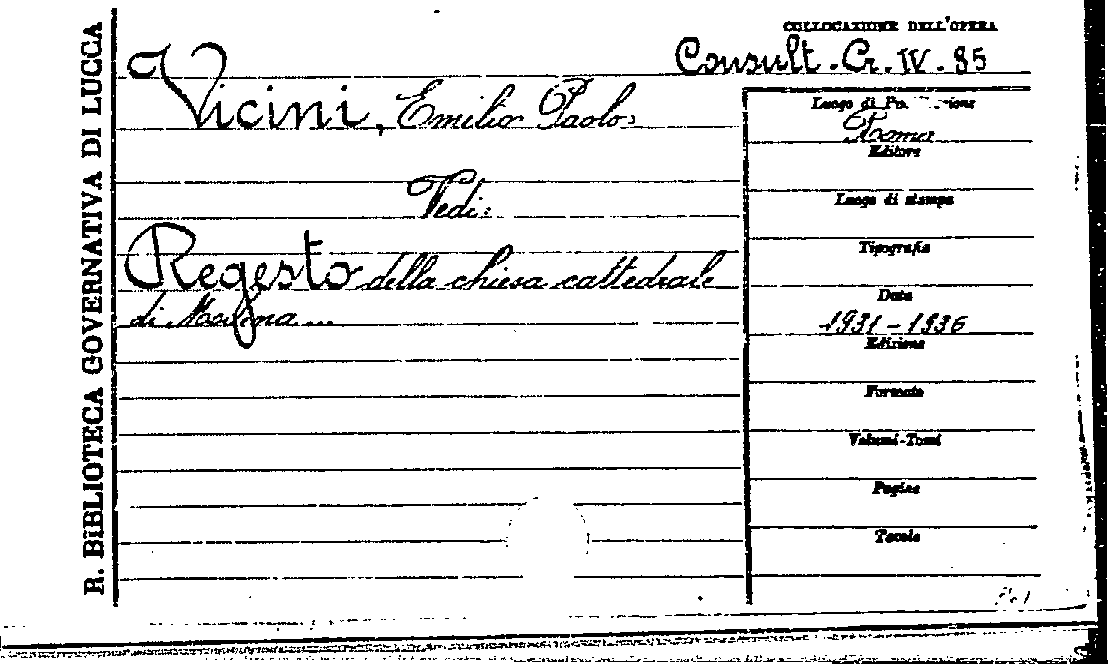 R. BIBLIOTECA GOVERNATIVA DI LUCCA
COLLOCAZIONE DELL'OPERA
Consult. Cr. IV. 95
Vicini, Emilio Paolo
Vedi:
Regesto della chiesa cattedrale
di Modena...
Luogo di
Roma
Editore
Luogo di stampa
Tipografia
Data
1931-1936
Edizione
Formato
Volumi-Tomi
Pagine
Tavole